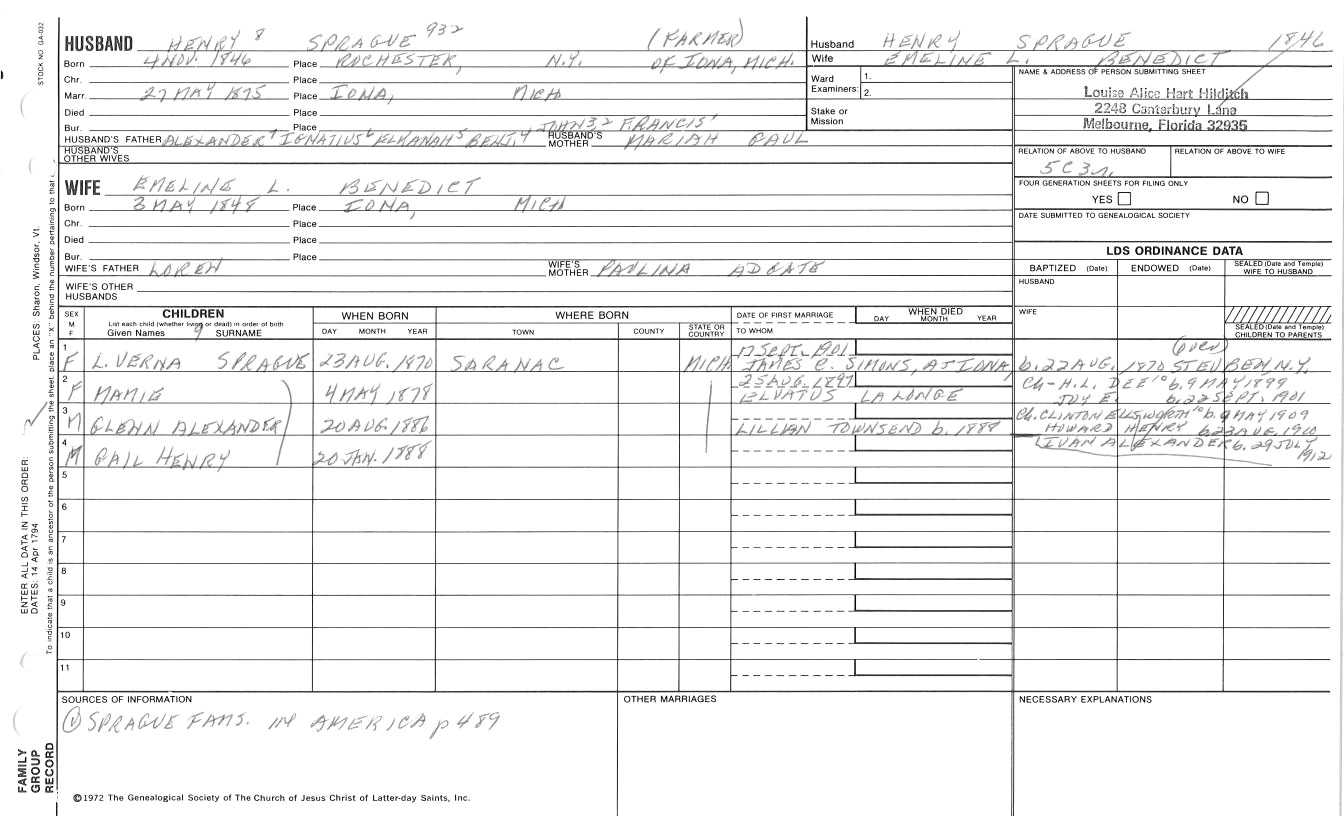 STOCK NO. GA-032
HUSBAND HENRY 8 SPRAGUE 932 (FARMER)
Born 4 NOV. 1846 Place ROCHESTER, N.Y. OF IONA, MICH.
Chr. Place
Marr. 27 MAY 1875 Place IONA, MICH
Died Place
Bur. Place JOHN 3, 2 FRANCIS 1
HUSBAND'S FATHER ALEXANDER 7 IGNATIUS 6 ELKANAH 5 BENJ. 4 HUSBAND'S MOTHER MARIAH GAUL
HUSBAND'S OTHER WIVES
Husband HENRY SPRAGUE 1846
Wife EMELINE L. BENEDICT
Ward Examiners: 1.
2.
Stake or Mission
NAME & ADDRESS OF PERSON SUBMITTING SHEET
Louise Alice Hart Hilditch
2248 Canterbury Lane
Melbourne, Florida 32935
RELATION OF ABOVE TO HUSBAND RELATION OF ABOVE TO WIFE
5C3r.
FOUR GENERATION SHEETS FOR FILING ONLY
YES NO
DATE SUBMITTED TO GENEALOGICAL SOCIETY
WIFE EMELINE L. BENEDICT
Born 3 MAY 1848 Place IONA, MICH
Chr. Place
Died Place
Bur. Place
WIFE'S FATHER LOREN WIFE'S MOTHER PAULINA ADGATE
WIFE'S OTHER HUSBANDS
LDS ORDINANCE DATA
BAPTIZED (Date) ENDOWED (Date) SEALED (Date and Temple) WIFE TO HUSBAND
HUSBAND
WIFE
SEALED (Date and Temple) CHILDREN TO PARENTS
SEX M F CHILDREN List each child (whether living or dead) in order of birth Given Names 9 SURNAME
WHEN BORN DAY MONTH YEAR
WHERE BORN TOWN COUNTY STATE OR COUNTRY
DATE OF FIRST MARRIAGE TO WHOM
WHEN DIED DAY MONTH YEAR
17 SEPT. 1901 (over)
1 F L. VERNA SPRAGUE 23 AUG. 1870 SARANAC MICH. JAMES C. SIMONS, AT IONA, b. 22 AUG. 1870 STEUBEN N.Y.
25 AUG. 1897 Ch- H.L. DEE 10 b. 9 MAY 1899
2 F MAMIE 4 MAY 1878 ELVATUS LA LONGE JOY E. b. 22 SEPT. 1901
Ch. CLINTON ELLSWORTH 10 b. 9 MAY 1909
3 M GLENN ALEXANDER 20 AUG 1886 LILLIAN TOWNSEND b. 1888 HOWARD HENRY b 23 AUG. 1910
IVAN ALEXANDER b. 29 JULY 1912
4 M GAIL HENRY 20 JAN. 1888
5
6
7
8
9
10
11
SOURCES OF INFORMATION
(1) SPRAGUE FAMS. IN AMERICA p 489
OTHER MARRIAGES
NECESSARY EXPLANATIONS
©1972 The Genealogical Society of The Church of Jesus Christ of Latter-day Saints, Inc.
FAMILY GROUP RECORD
ENTER ALL DATA IN THIS ORDER:
DATES: 14 Apr 1794
PLACES: Sharon, Windsor, Vt.
To indicate that a child is an ancestor of the person submitting the sheet, place an "X" behind the number pertaining to that